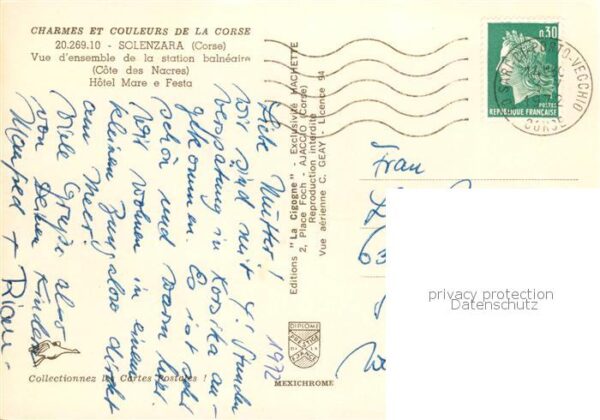 CHARMES ET COULEURS DE LA CORSE
20.269.10 - SOLENZARA (Corse)
Vue d'ensemble de la station balnéaire
(Côte des Nacres)
Hôtel Mare e Festa
Liebe Mutter!
Wir sind mit 4 Stunden
verspätung in Korsika an-
gekommen. Es ist sehr
schön und warm hier.
Wir wohnen in einem
kleinen Bungalow direkt
am Meer.
Viele Grüße also
von Deinen Kindern
Manfred +
1972
Editions "La Cigogne" - Exclusivité HACHETTE
2, Place Foch - AJACCIO (Corse)
Reproduction interdite
Vue aérienne C. GEAY - Licence 94
0,30
POSTES
REPUBLIQUE FRANÇAISE
PORTO-VECCHIO
CORSE
Frau
63
privacy protection
Datenschutz
DIPLOME
PRESTIGE
DE LA
FRANCE
MEXICHROME
Collectionnez les Cartes Postales !